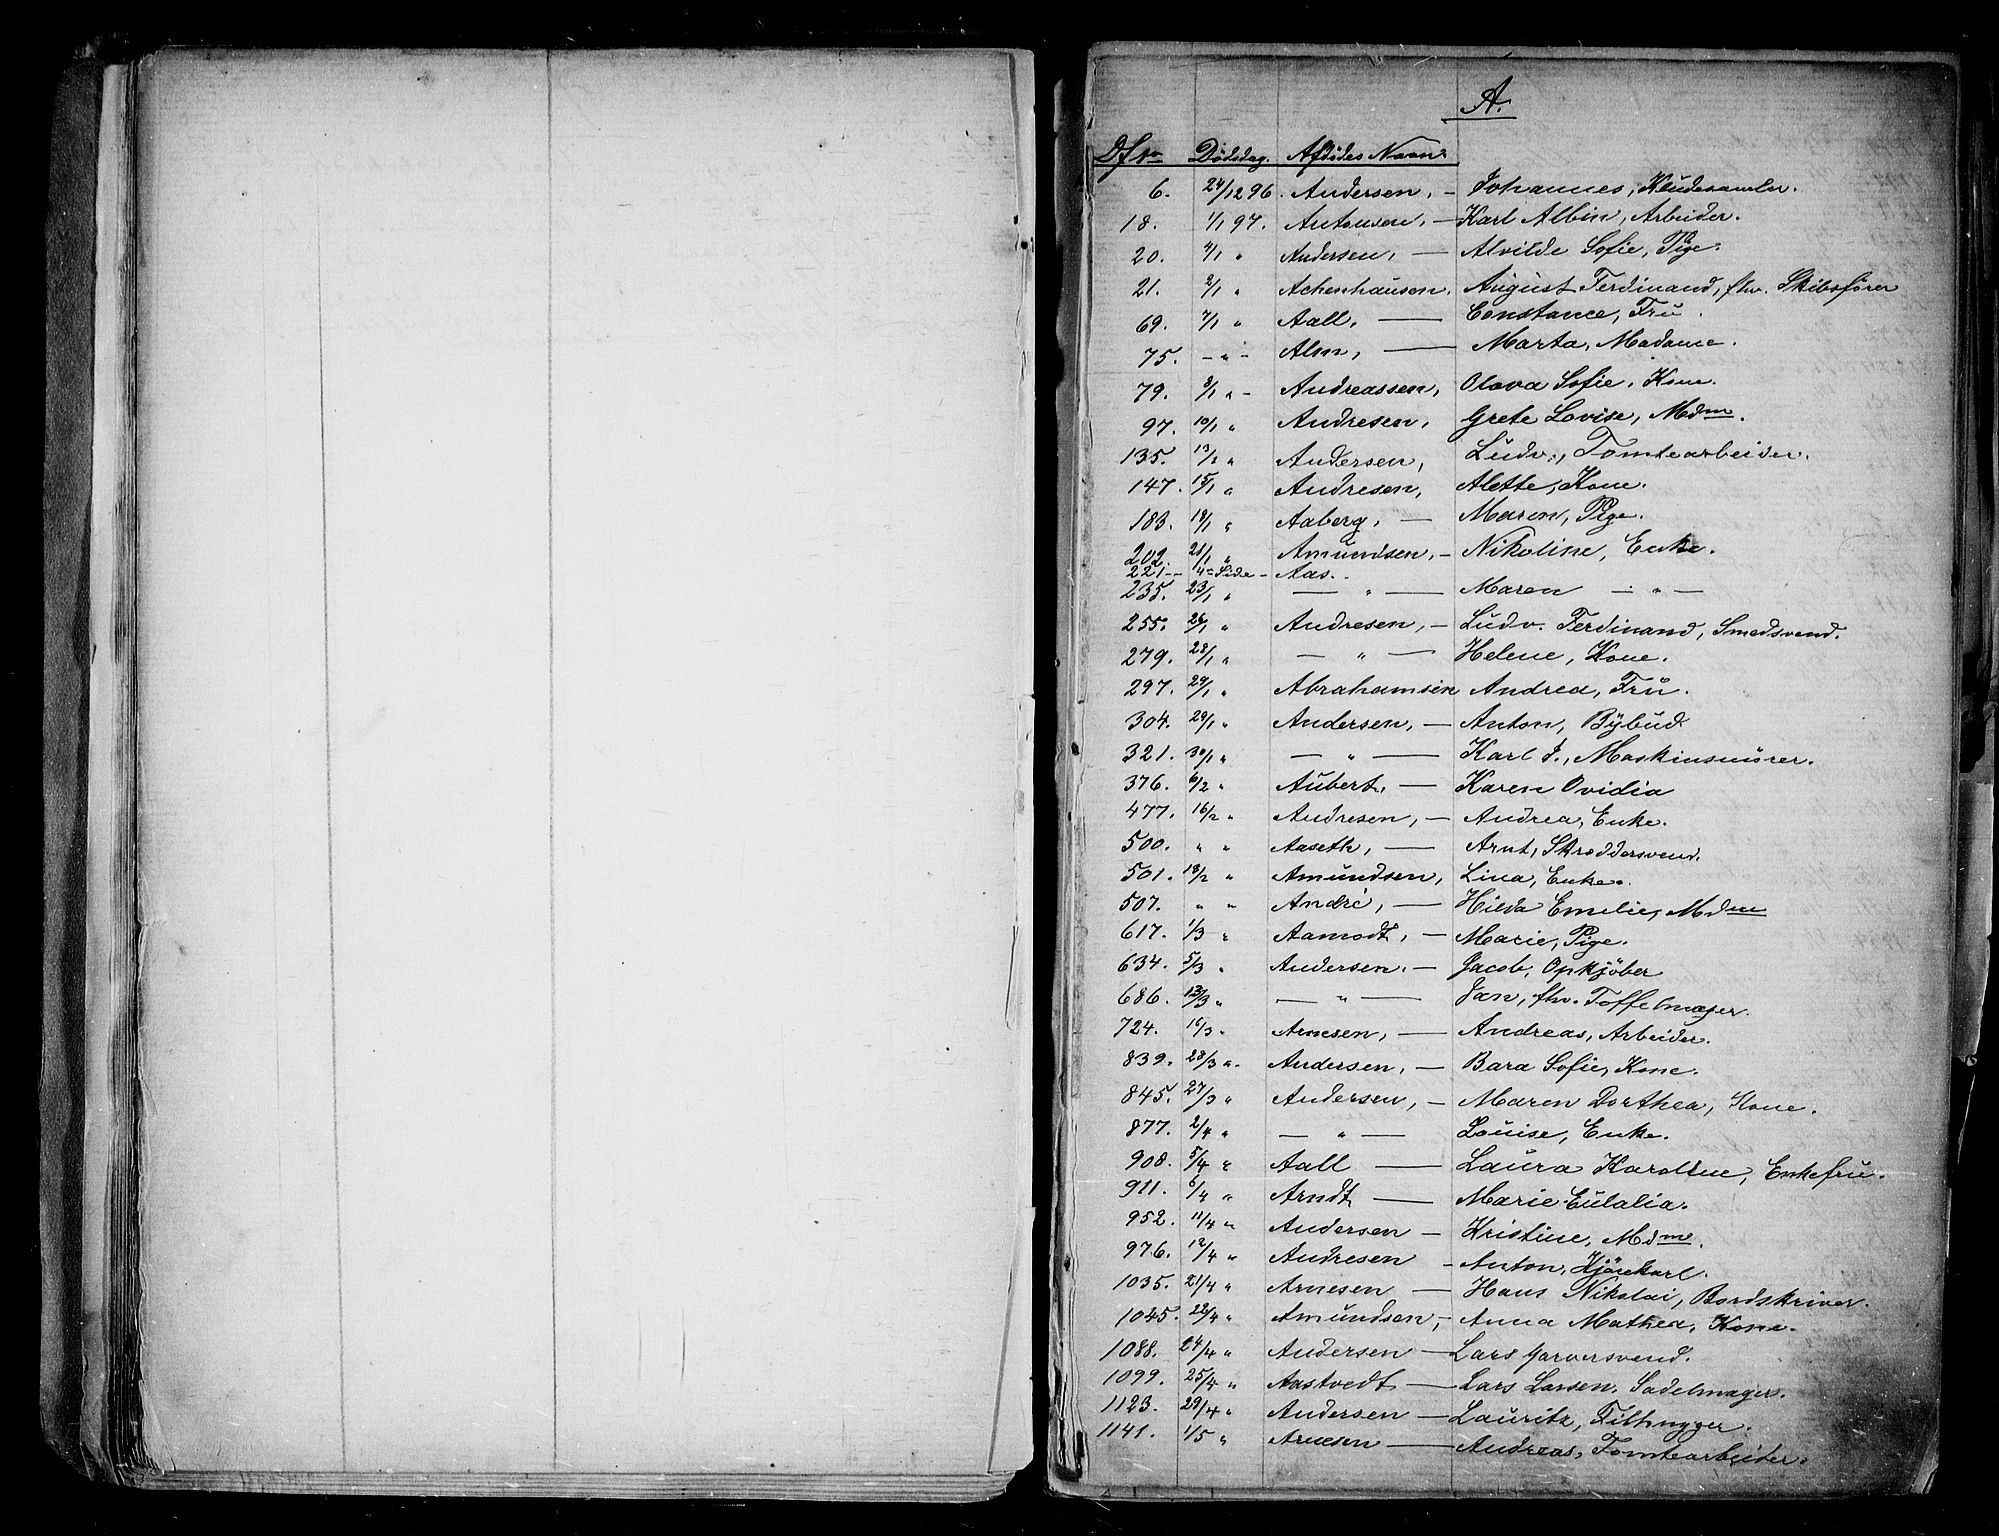 A.
Df No Dødsdag. Afdødes Navn
6. 24/12 96. Andersen, — Johannes, Kludesamler.
18. 1/1 97. Antonsen, — Karl Albin, Arbeider.
20. 4/1 " Andersen, — Alvilde Sofie, Pige.
21. 2/1 " Achenhausen, August Ferdinand, fhv. Skibsfører
69. 7/1 " Aall, — Constance, Fru.
75. — " — Alm, — Marta, Madame.
79. 8/1 " — Andreassen, Olava Sofie, Kone.
97. 10/1 " Andresen, Grete Lovise, Mdm.
135. 13/1 " Andersen, Ludv., Tomtearbeider.
147. 15/1 " Andresen, Alette, Kone.
183. 18/1 " Aaberg, — Maren, Pige.
202. 21/1 " Amundsen, — Nikoline, Enke.
221 — 4de Side — Aas.
235. 23/1 " — " — Maren — " —
255. 26/1 " Andresen, — Ludv. Ferdinand, Smedsvend.
279. 28/1 " — " — Helene, Kone.
297. 29/1 " Abrahamsen Andrea, Fru.
304. 29/1 " Andersen, — Anton, Bybud
321. 30/1 " — " — Karl J., Maskinsmører.
376. 6/2 " Aubert, — Karen Ovidia
477. 16/2 " Andresen, — Andrea, Enke.
500. " " Aaseth, — Arnt, Skræddersvend.
501. 18/2 " Amundsen, Lina, Enke.
507. " " André, — Hilda Emelie, Mdme
617. 1/3 " Aamodt, — Marie, Pige.
634. 5/3 " Andersen, — Jacob, Opkjøber
686. 13/3 " — " — Jan, fhv. Toffelmager.
724. 16/3 " Arnesen, — Andreas, Arbeider.
839. 28/3 " Andersen, — Bara Sofie, Kone.
845. 27/3 " Andersen, — Maren Dorthea, Kone.
877. 2/4 " — " — Louise, Enke.
908. 5/4 " Aall — Laura Karoline, Enkefru.
911. 6/4 " Arndt — Marie Eulalia.
952. 11/4 " Andersen — Kristine, Mdme.
976. 12/4 " Andresen — Anton, Kjørekarl.
1035. 21/4 " Arnesen — Hans Nikolai, Bordskriver.
1045. 22/4 " Amundsen, — Anna Mathea, Kone.
1088. 24/4 " Andersen — Lars Garversvend.
1099. 25/4 " Aastvedt — Lars Larsen, Sadelmager.
1123. 29/4 " Andersen — Lauritz, Filhugger.
1141. 1/5 " Arnesen — Andreas, Tomtearbeider.